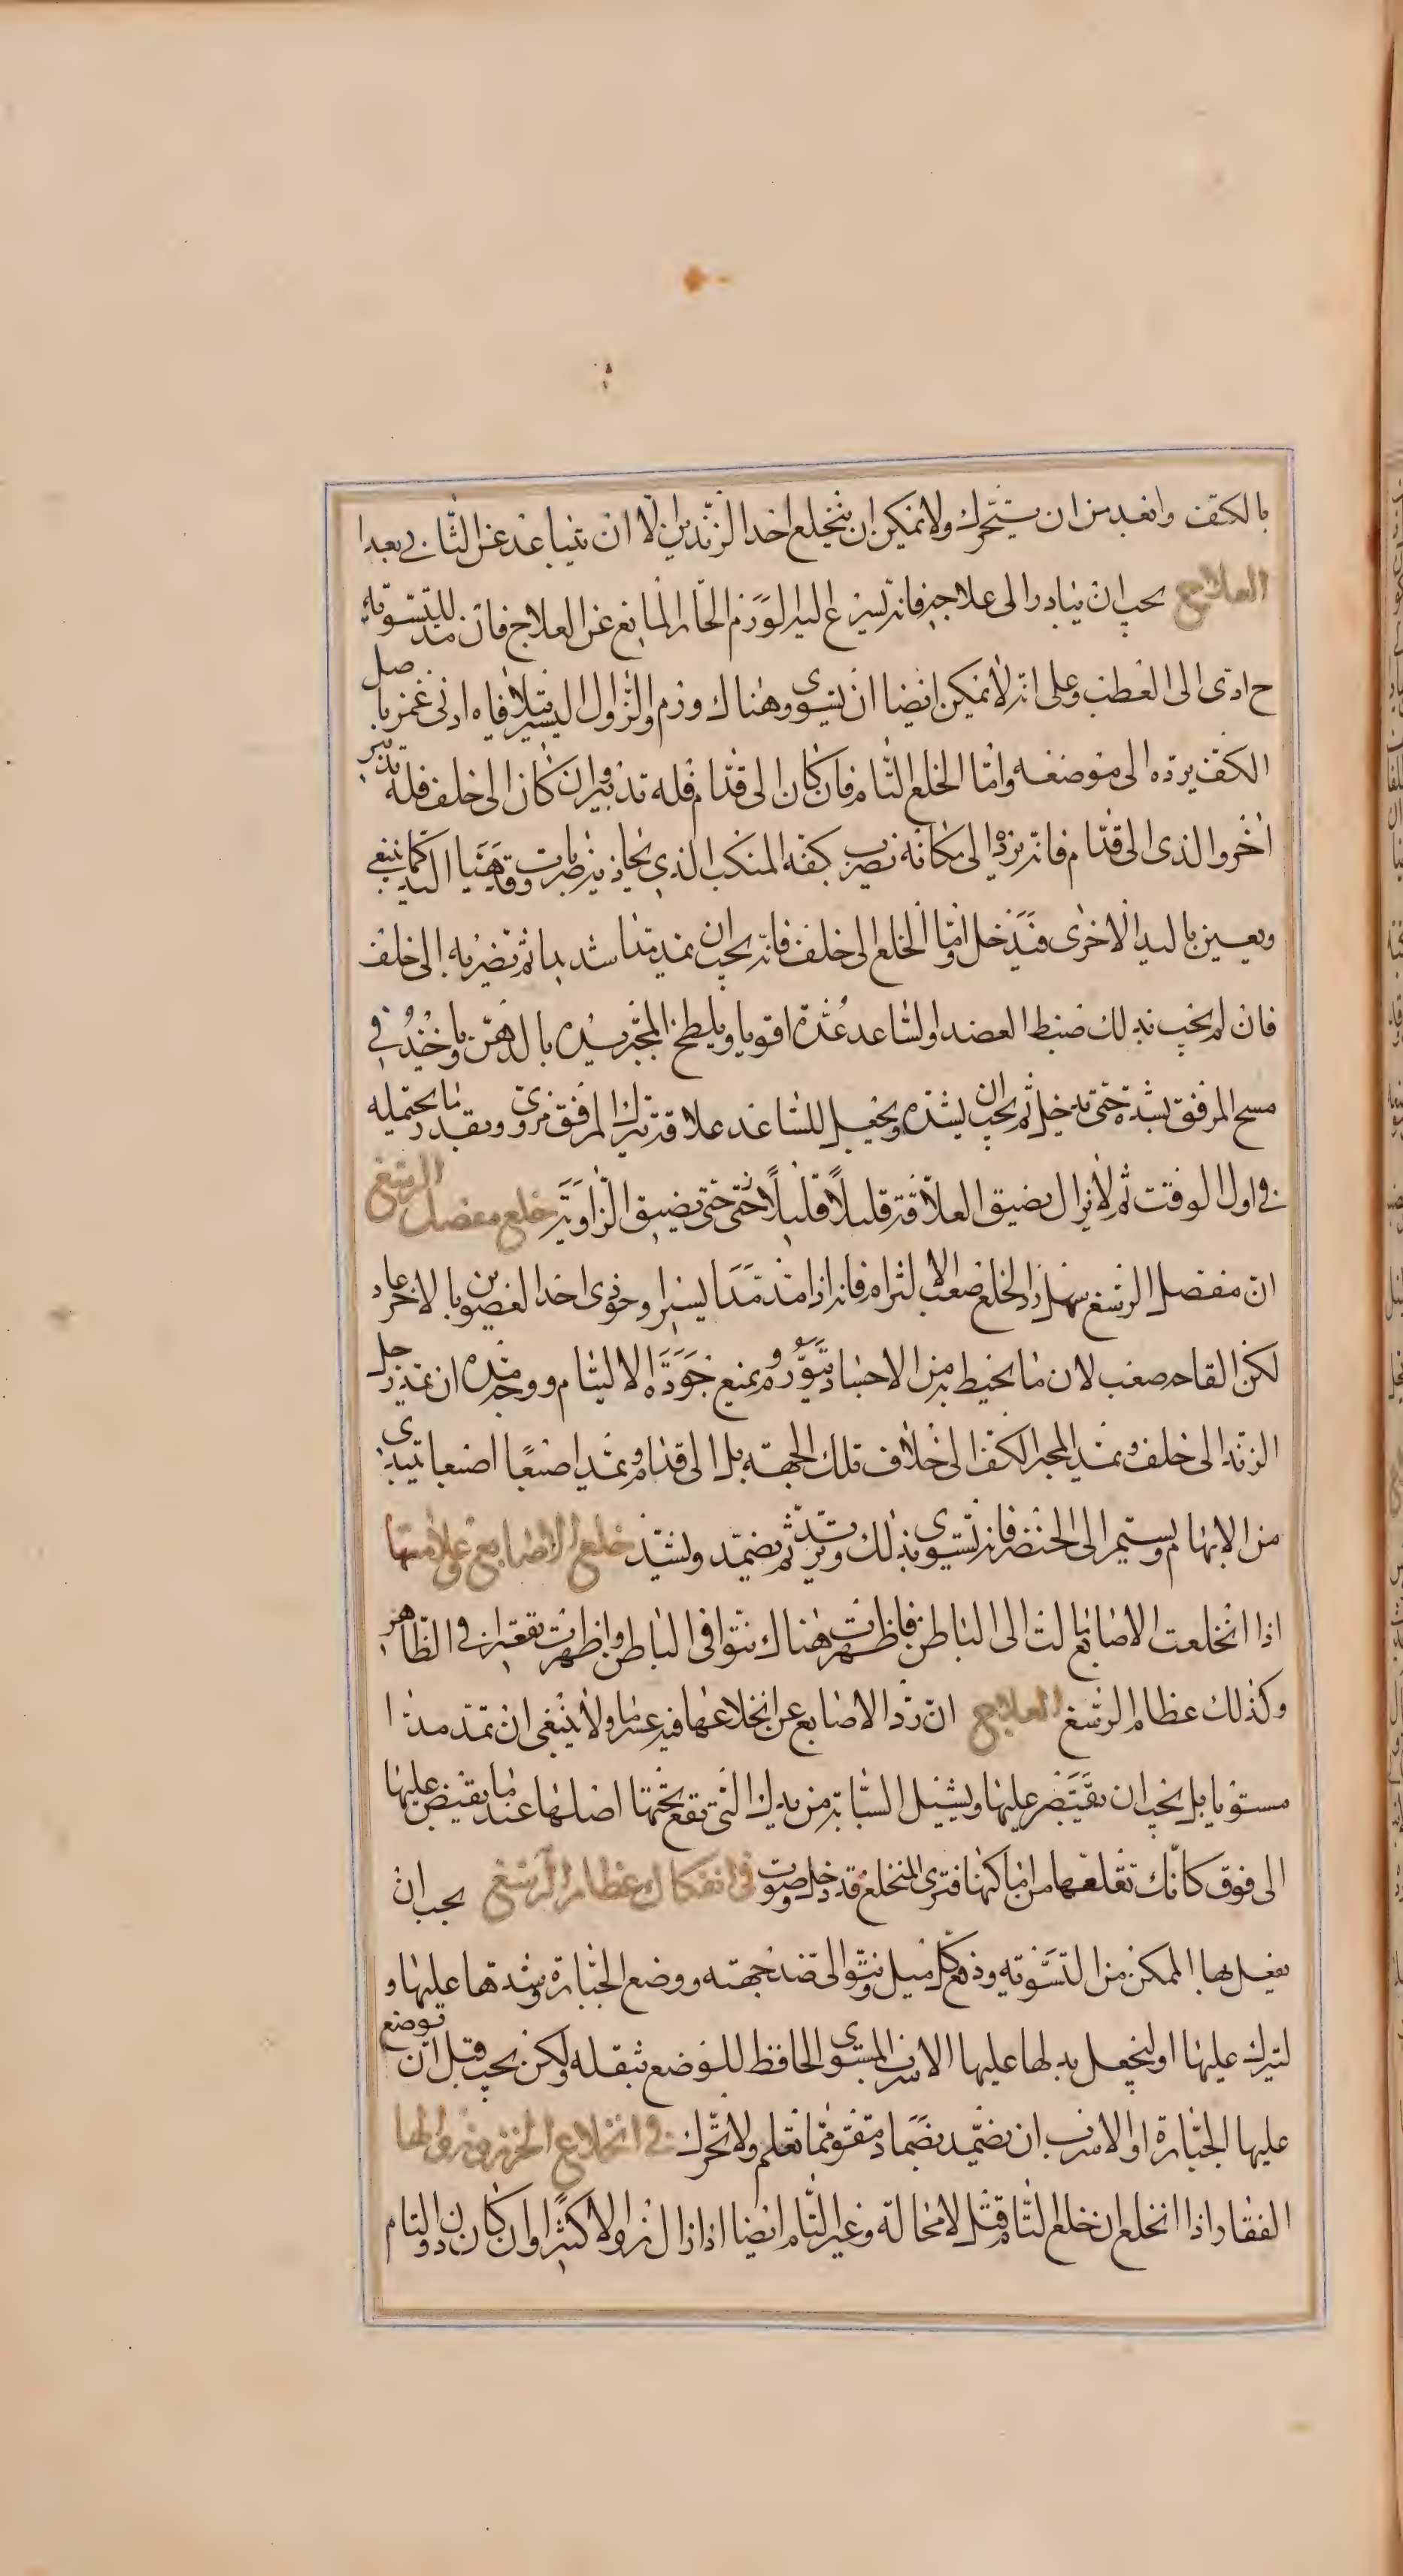 بالكتف وابعد من ان يتحرك ولا يمكن ان ينخلع احد الزندين الا ان يتباعد عن الثاني بعدا
العلاج يجب ان يبادر الى علاجه فانه يسرع اليه الورم الحار المانع عن العلاج فان مد للتسوية
ح ادى الى العطب وعلى انه لا يمكن ايضا ان يسوى وهناك ورم والزوال اليسير يتلافاه ادنى غمز باصل
الكف يرده الى موضعه واما الخلع التام فان كان الى قدام فله تدبير وان كان الى خلف فله تدبير
اخر والذي الى قدام فانه يرد الى مكانه بضرب كفه المنكب الذي يحاذيه ضربات وقد هيئا اليد كما ينبغي
ويعين باليد الاخرى فيدخل واما الخلع الى خلف فانه يجب ان يمد مدا شديدا ثم يضربه الى خلف
فان لم يجب بذلك ضبط العضد والساعد عدة اقويا ويلطخ المجبر يده بالدهن وياخذ في
مسح المرفق بشدة حتى يدخل ثم يجب ان يشده ويجعل للساعد علاقة تترك المرفق مزوى وبقدر ما يحتمله
في اول الوقت ثم لا يزال يضيق العلاقة قليلاً قليلاً حتى حتى يضيق الزاوية خلع مفصل الرسغ
ان مفصل الرسغ سهل رد الخلع صعب الالتزام فانه اذا مد مدا يسيرا وحوذي احد العضوين بالاخر عاد
لكن القامه صعب لان ما يحيط به من الاجساد يتورم ويمنع جودة الالتيام ووجه مده ان يمد رجل
الزند الى خلف ويمد المجبر الكف الى خلاف تلك الجهة بل الى قدام ويمد اصبعا اصبعا يبتدى
من الابهام ويستمر الى الخنصر فانه يستوى بذلك ويرتد ثم يضمد ويشد خلع الاصابع وعلامتها
اذا انخلعت الاصابع مالت الى الباطن فاظهرت هناك نتوا في الباطن واظهرت تقعيرا في الظاهر
وكذلك عظام الرسغ العلاج ان رد الاصابع عن انخلاعها فيه عسر ما ولا ينبغي ان تمد مدا
مستويا بل يجب ان يقبض عليها ويشيل السبابة من يدك التي تقع تحتها اصلها عند ما يقبض عليها
الى فوق كانك تقلعها من اماكنها فترى المنخلع قد دخل وصوت في انفكاك عظام الرسغ يجب ان
يفعل بها الممكن من التسوية ودفع كل ميل ونتو الى ضد جهته ووضع الجبارة وشدها عليها و
ليترك عليها اوليجعل بدلها عليها الاسرب المسوى الحافظ للوضع بثقله ولكن يجب قبل ان توضع
عليها الجبارة او الاسرب ان يضمد بضماد مقو مما تعلم ولا تحرك في انخلاع الخرز وزوالها
الفقار اذا انخلع ان خلع التام قتل لا محالة وغير التام ايضا اذا زال زوالا كثيرا وان كان دون التام